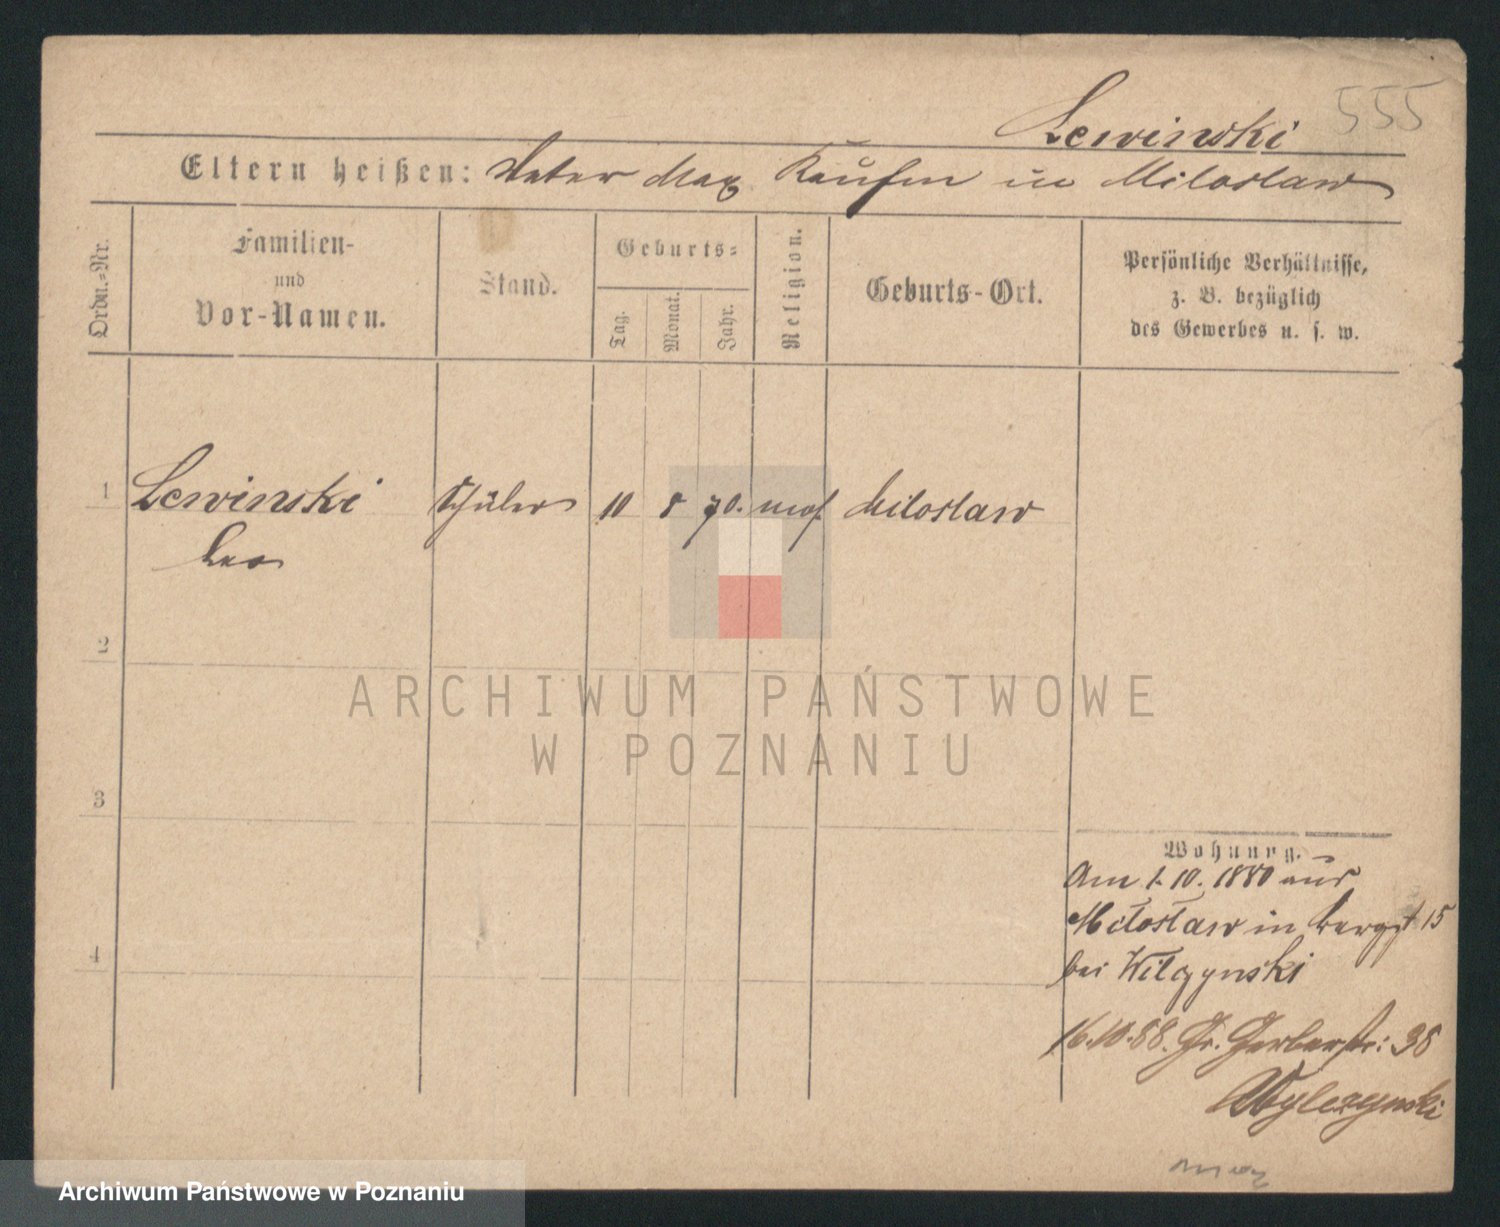 555
Lewinski
Eltern heißen: Vater Max Kaufm in Miloslaw
Ordn.-Nr.
Familien-
und
Vor-Namen.
Stand.
Geburts-
Tag.
Monat.
Jahr.
Religion.
Geburts-Ort.
Persönliche Verhältnisse,
z. B. bezüglich
des Gewerbes u. s. w.
1 Lewinski Schüler 10 8 70. mos. Miloslaw
Leo
2
3
4
Wohnung.
Am 1.10.1880 aus
Miloslaw in Bergst 15
bei Wilczynski
16.10.88. Gr. Gerberstr: 38
Wylczynski
ARCHIWUM PAŃSTWOWE
W POZNANIU
Archiwum Państwowe w Poznaniu